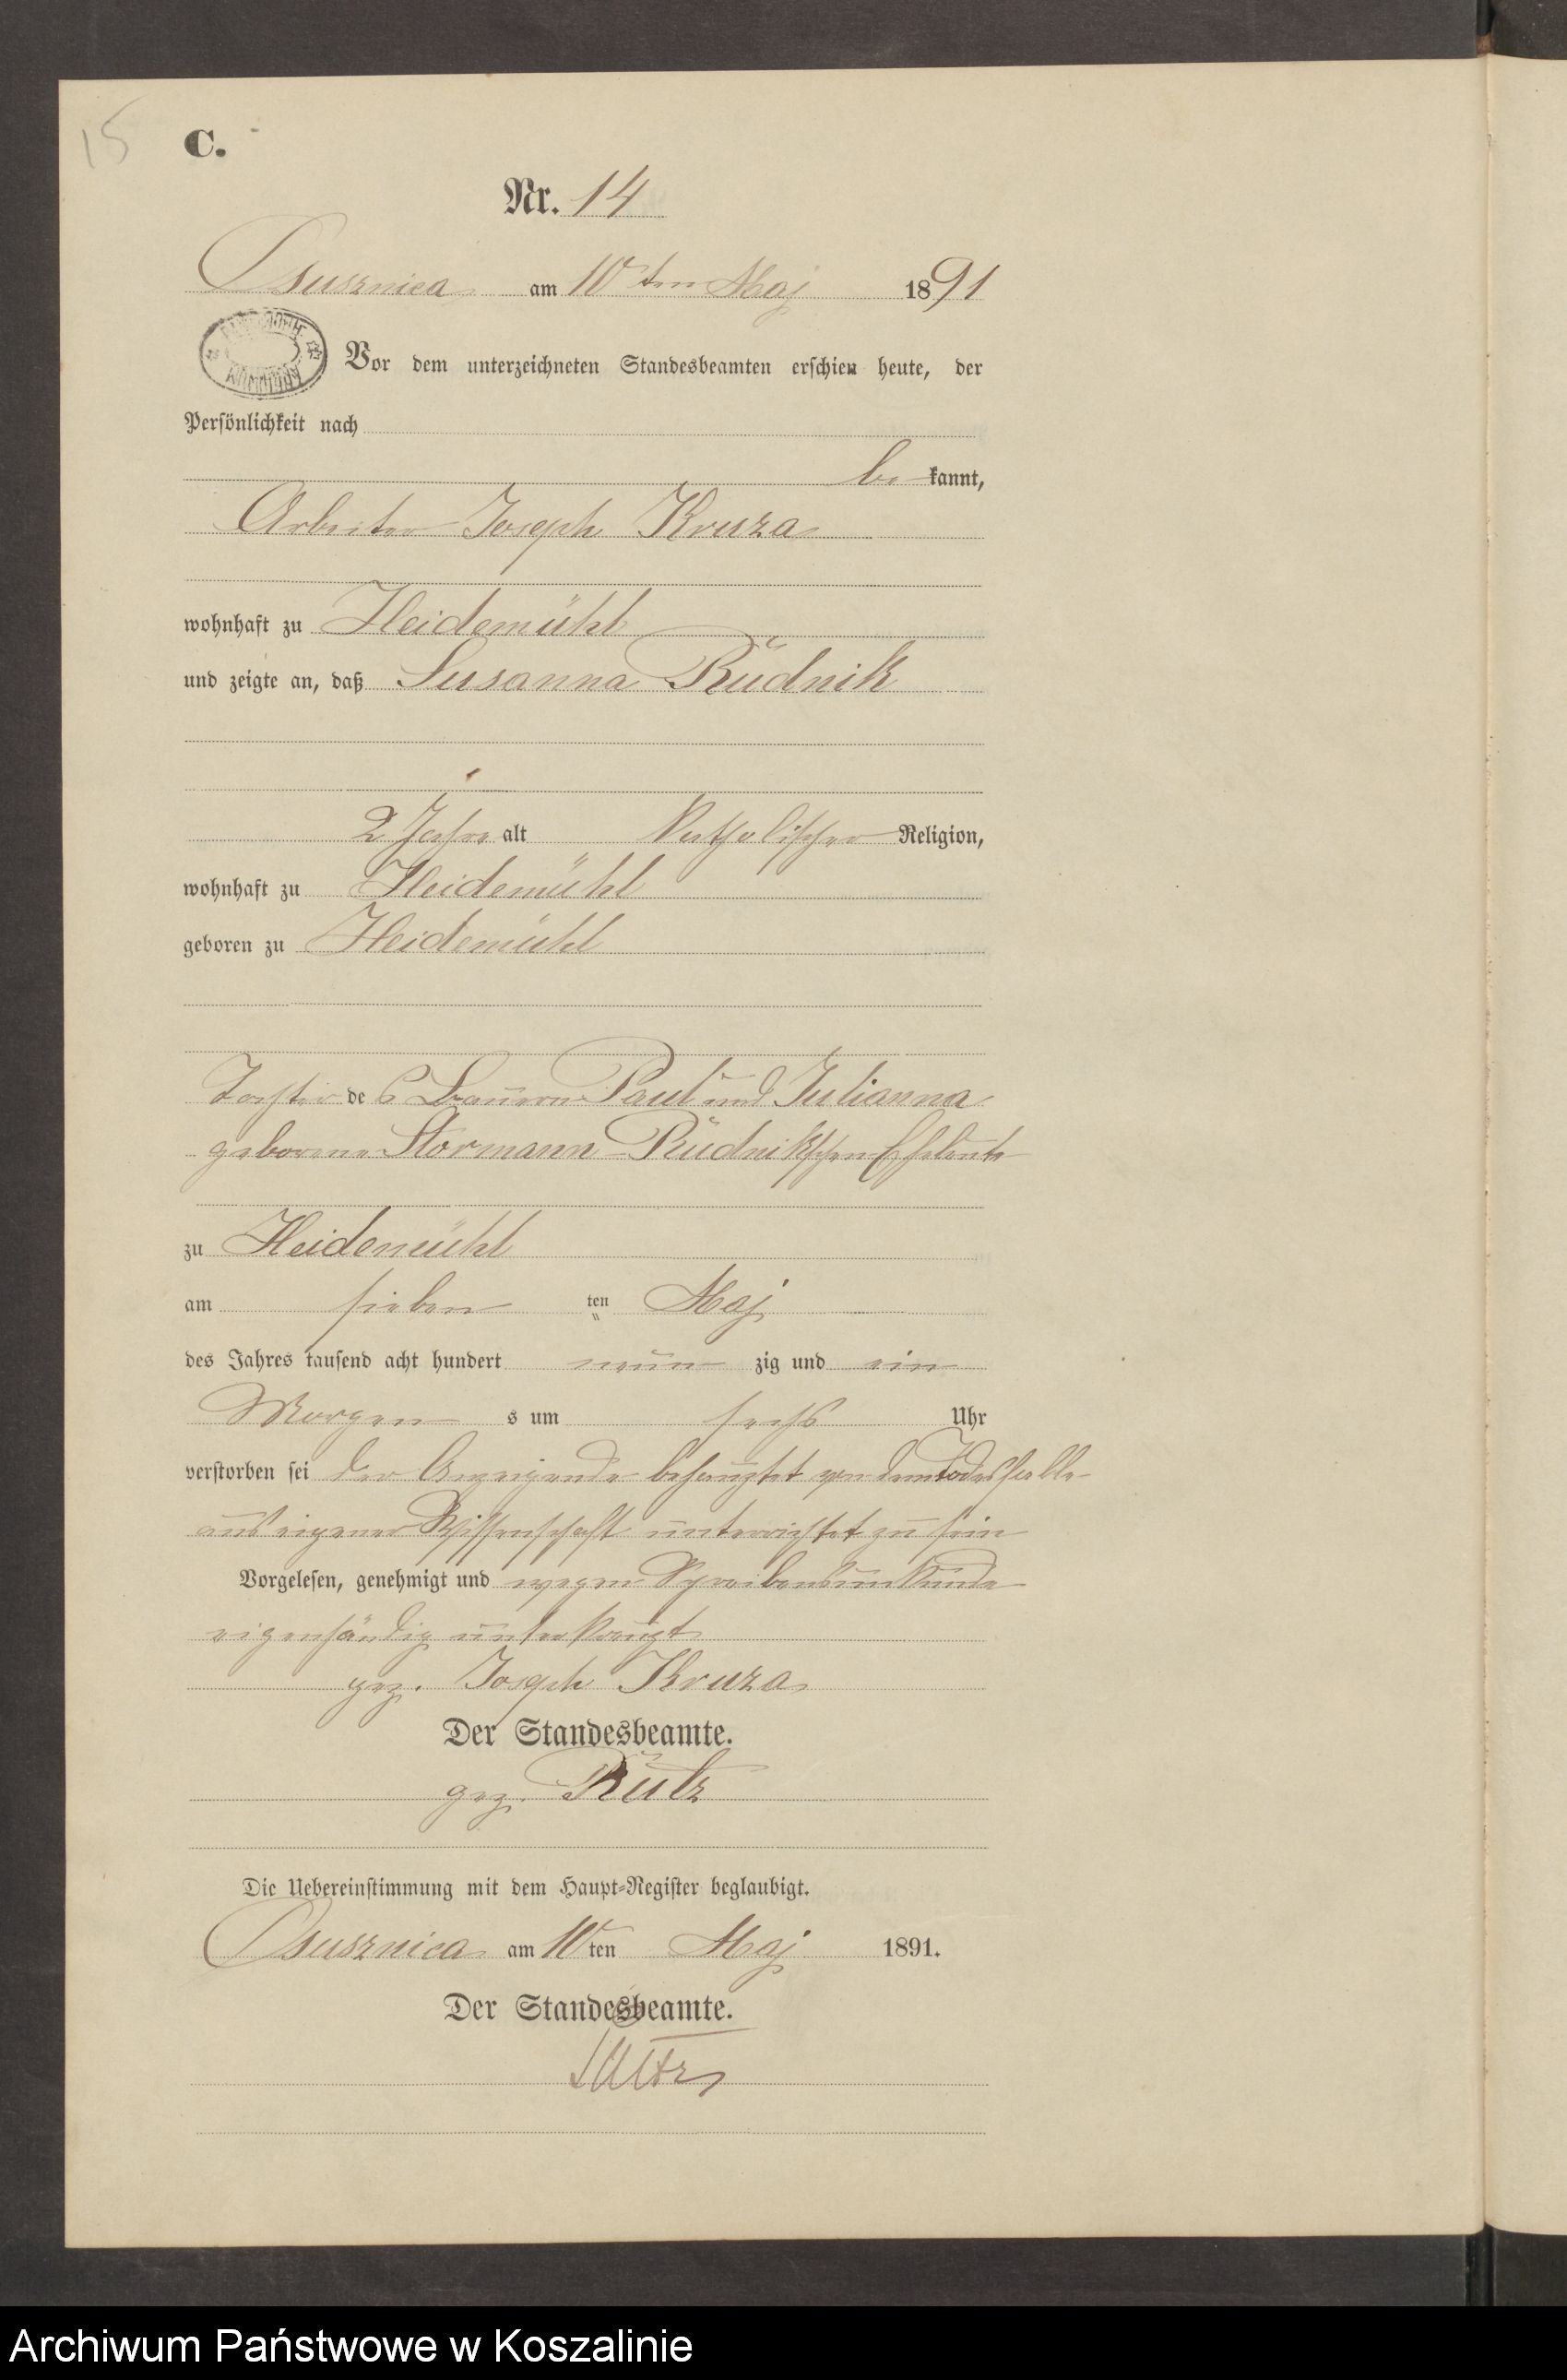 15
C.
Nr. 14
Osusznica am 10ten Maj 1891
Vor dem unterzeichneten Standesbeamten erschien heute, der
Persönlichkeit nach
be kannt,
Arbeiter Joseph Kruza
wohnhaft zu Heidemühl
und zeigte an, daß Susanna Rŭdnik
2 Jahre alt Katholischer Religion,
wohnhaft zu Heidemühl
geboren zu Heidemühl
Tochter des Bauern Paul und Julianna
geborene Stormann-Rŭdnikschen Eheleute
zu Heidemühl
am sieben ten Maj
des Jahres tausend acht hundert neun zig und ein
Morgen s um sechs Uhr
verstorben sei der Anzeigende behauptet von dem Todesfalle
aus eigener Wissenschaft unterrichtet zu sein
Vorgelesen, genehmigt und wegen Schreibensunkunde
eigenhändig unterkreuzt
gez. Joseph Kruza
Der Standesbeamte.
gez. Rutz
Die Uebereinstimmung mit dem Haupt-Register beglaubigt.
Osusznica am 10ten Maj 1891.
Der Standesbeamte.
Rutz
Archiwum Państwowe w Koszalinie